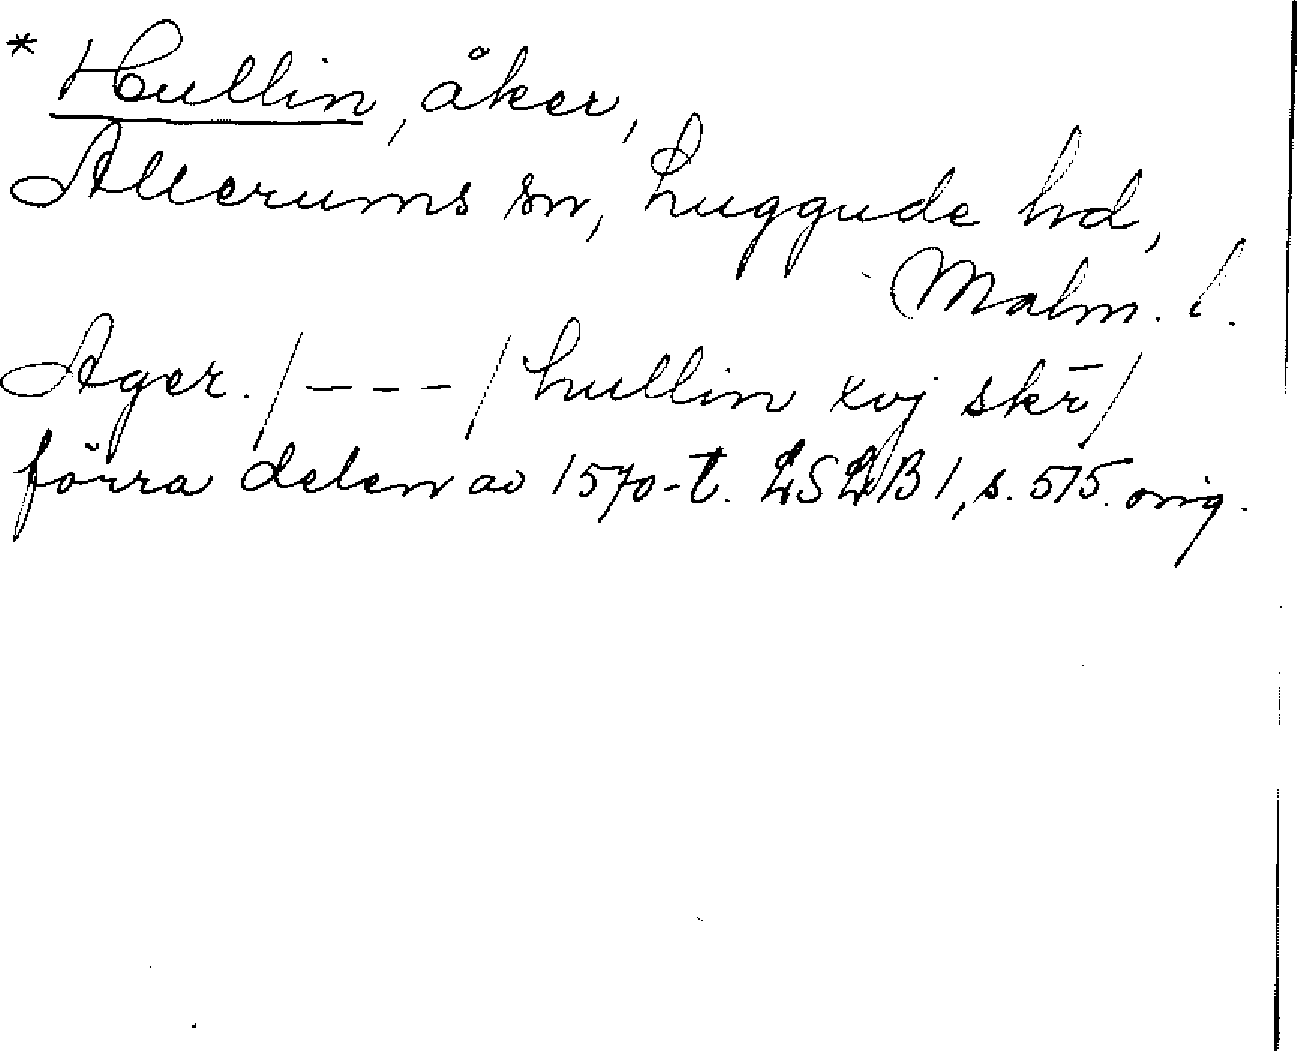 * Hullin, åker,
Allerums sn, Luggude hd,
Malm. l.
Ager. /---/ hullin xvj skr̄/
förra delen av 1570-t. LSLB 1, s. 515. orig.